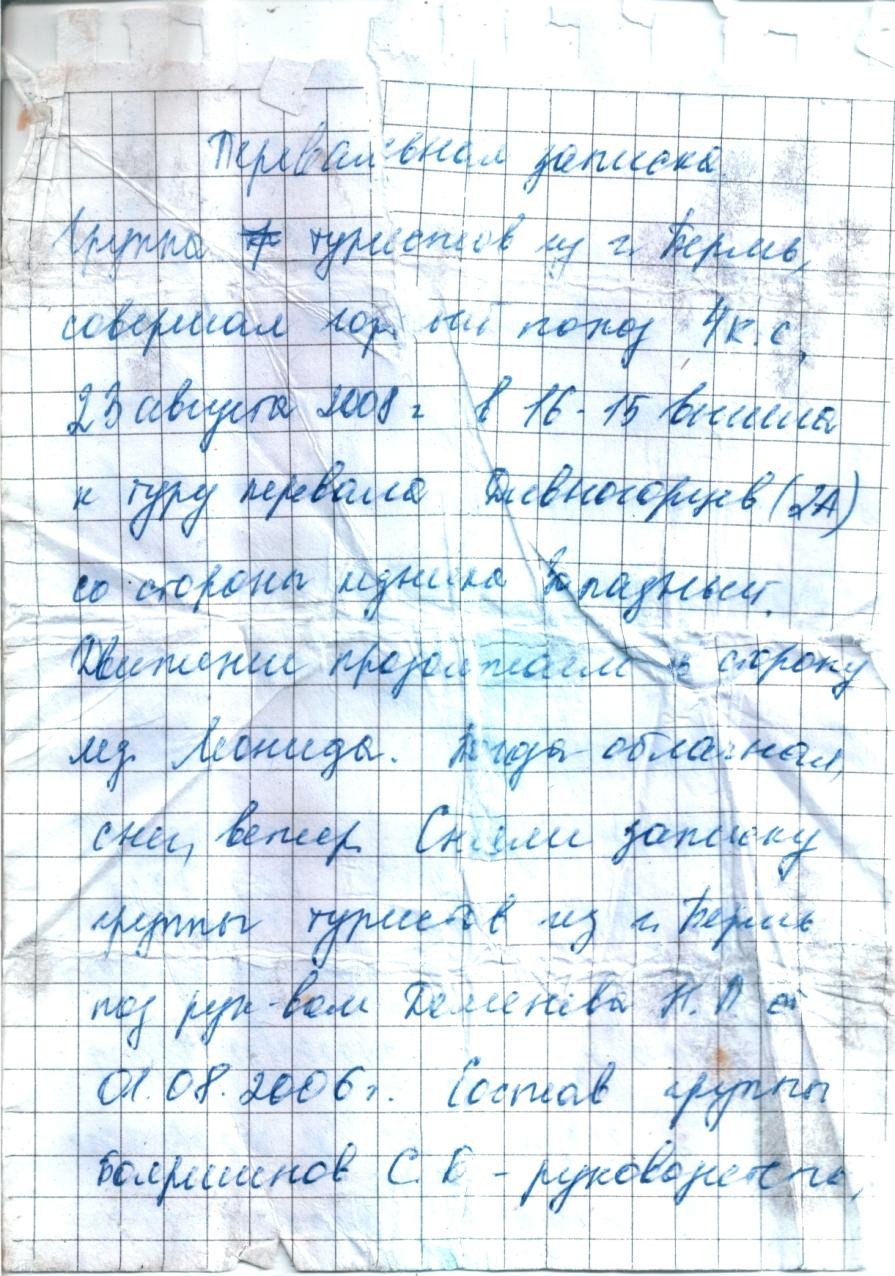 Перевальная записка
Группа туристов из г. Пермь,
совершая горный поход 4 к.с.,
23 августа 2008 г. в 16-15 вышла
к туру перевала Дивногорцев (2А)
со стороны ледника Западный.
Движение продолжаем в сторону
лед. Леонида. Погода облачная,
снег, ветер. Сняли записку
группы туристов из г. Пермь
под рук-вом Деменева Н.П от
01.08.2006 г. Состав группы
Бояршинов С.Б - руководитель,